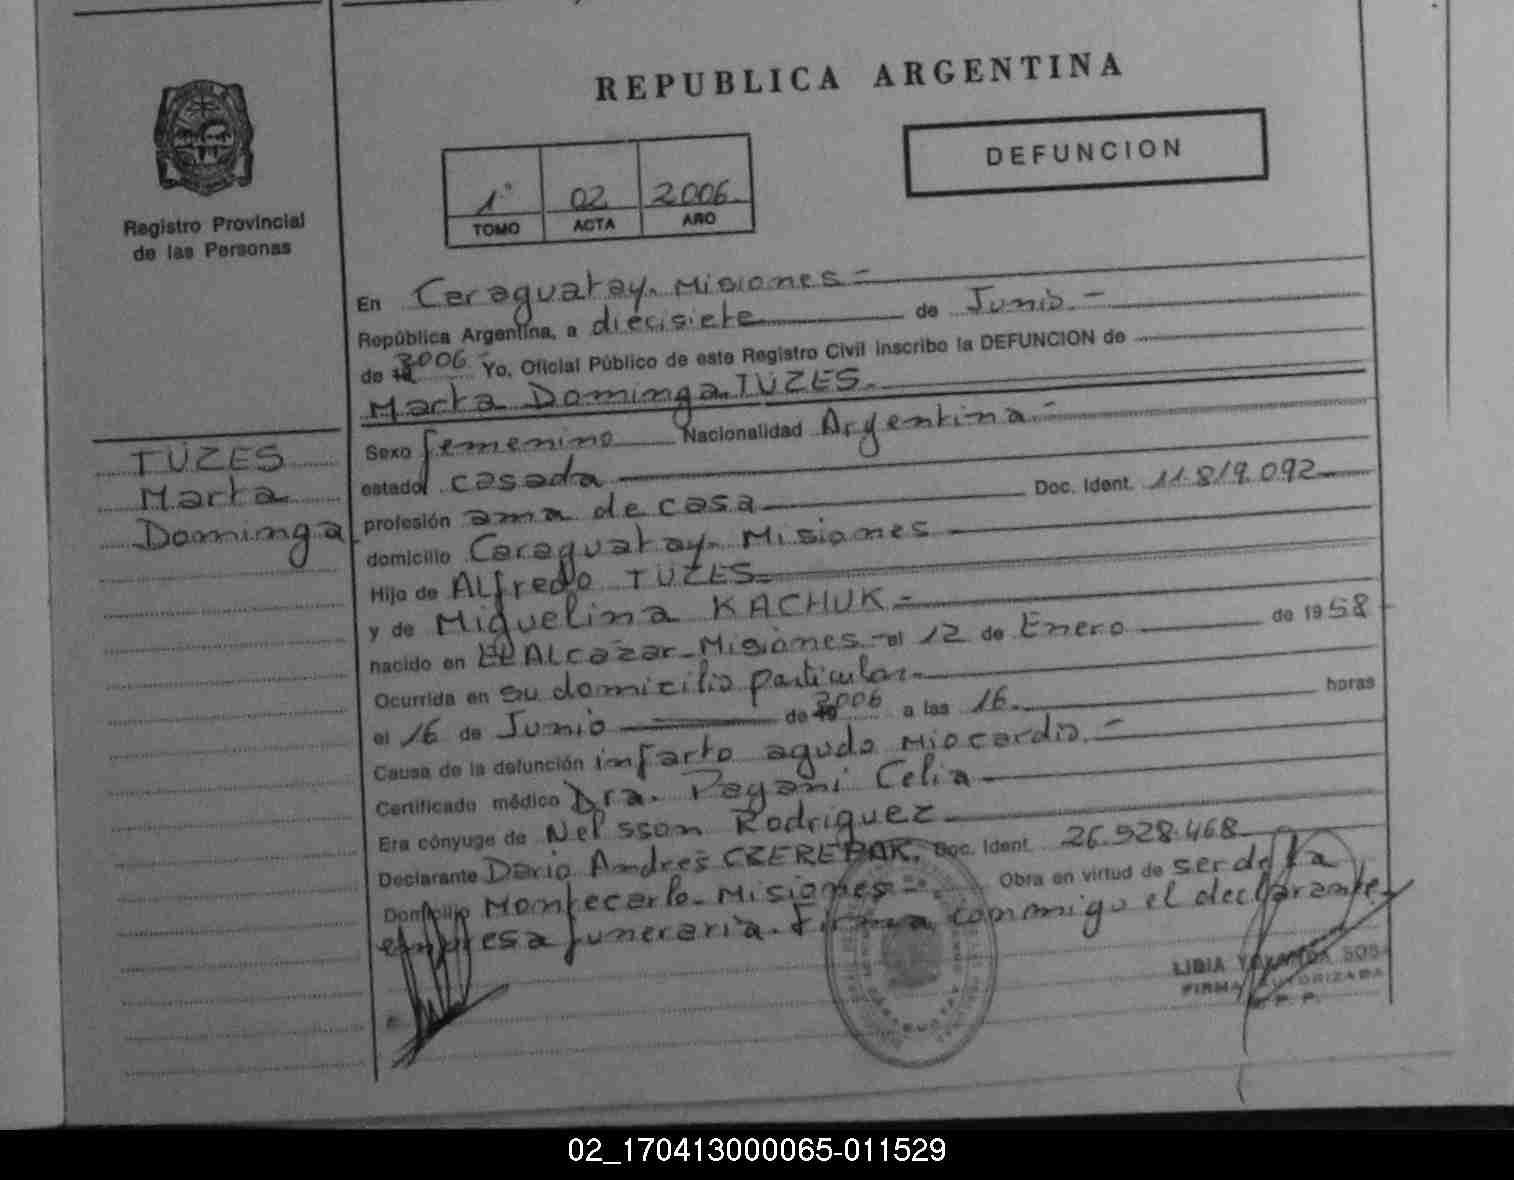 REPUBLICA ARGENTINA
DEFUNCION
1º 02 2006
TOMO ACTA AÑO
Registro Provincial
de las Personas
En Caraguatay. Misiones =
República Argentina, a diecisiete de Junio. -
de 19 2006 Yo, Oficial Público de este Registro Civil inscribo la DEFUNCION de
Marta Dominga TUZES.
TUZES
Marta
Dominga
Sexo femenino Nacionalidad Argentina. -
estado casada
profesión ama de casa Doc. Ident. 11.819.092
domicilio Caraguatay. Misiones
Hijo de ALfredo TUZES=
y de Miguelina KACHUK. -
nacido en El ALcazar-Misiones.- el 12 de Enero de 1958
Ocurrida en su domicilio particular.
el 16 de Junio de 19 2006 a las 16. horas
Causa de la defunción infarto agudo Miocardio. -
Certificado médico Dra. Pagani Celia
Era cónyuge de Nelsson Rodriguez
Declarante Dario Andres CZEREPAK. Doc. Ident. 26.928.468
Domicilio Montecarlo. Misiones = Obra en virtud de ser de la
empresa funeraria. Firma conmigo el declarante
LIBIA SOSA
FIRMA AUTORIZADA
R. P. P.
02_170413000065-011529